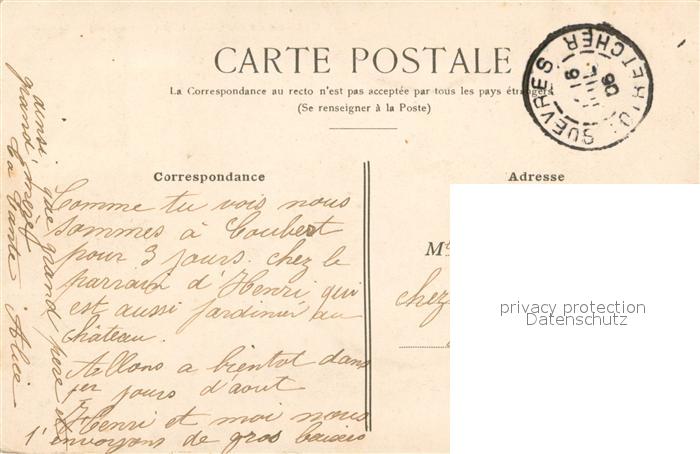 CARTE POSTALE
La Correspondance au recto n'est pas acceptée par tous les pays étrangers
(Se renseigner à la Poste)
SUEVRES
LOIR-ET-CHER
16
06
Correspondance
Comme tu vois nous
sommes à Coubert
pour 3 jours. chez le
parrain d'Henri, qui
est aussi jardinier au
château.
Allons a bientot dans
1er jours d'aout
Henri et moi nous
t'envoyons de gros baisers
ainsi que grand père et
grand'mère
ta tante Alice
Adresse
M
chez
privacy protection
Datenschutz